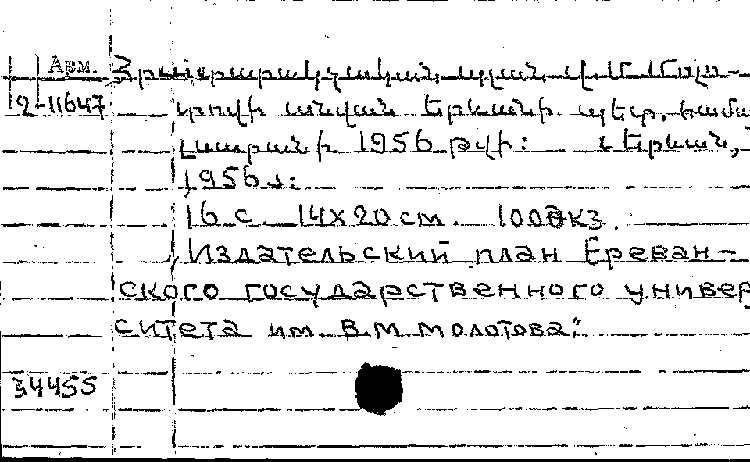 Арм. Հրատարակչական պլան Վ. Մ. Մոլո-
2-11647 տովի անվան Երևանի պետ. համա
լսարանի 1956 թվի: Երևան,
1956 թ:
16 с. 14x20 см. 100 экз.
Издательский план Ереван-
ского государственного универ
ситета им. В.М. Молотова:
34455